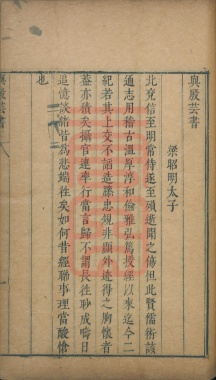 與殷芸書
梁昭明太子
北兗信至明常侍遂至殞逝聞之傷怛此賢儒術該
通志用稽古溫厚淳和倫雅弘篤授經以來迄今二
紀若其上交不諂造膝忠規非顯外迹得之胸懷者
蓋亦積矣攝官連率行當言歸不謂長往眇成疇日
追憶談緒皆為悲端往矣如何昔經聯事理當酸愴
也
與殷芸書